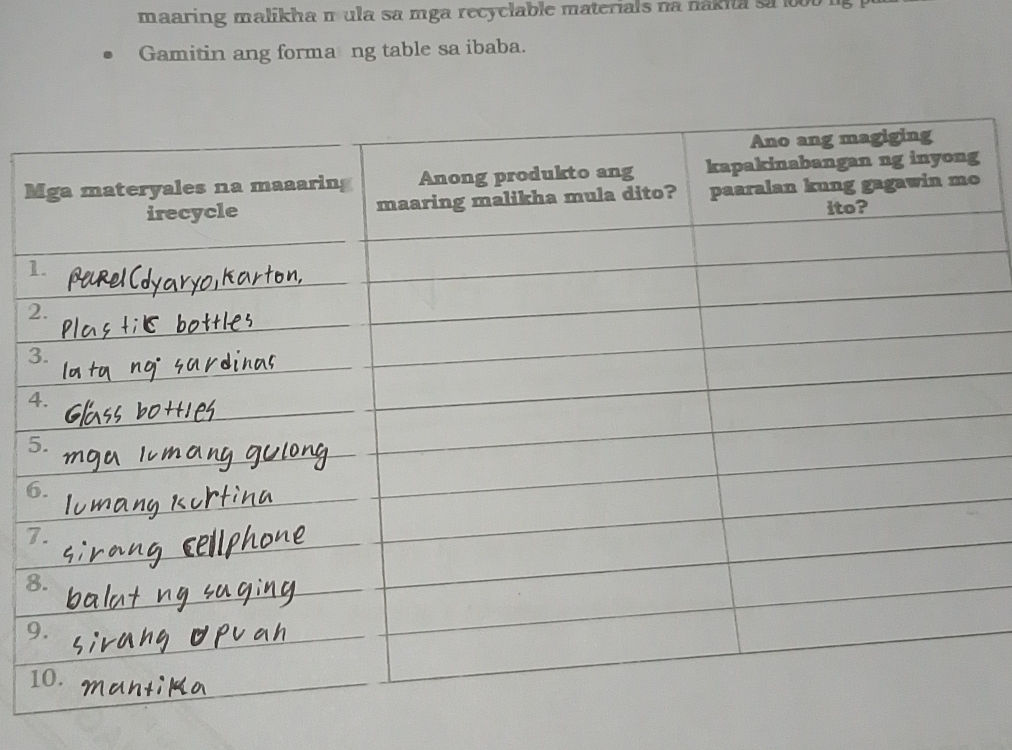 maaring malikha mula sa mga recyclable materials na nakita sa loob ng
Gamitin ang forma ng table sa ibaba.
Mga materyales na maaaring irecycle
Anong produkto ang maaring malikha mula dito?
Ano ang magiging kapakinabangan ng inyong paaralan kung gagawin mo ito?
1. papel (dyaryo, karton,
2. Plastik bottles
3. lata ng sardinas
4. Glass bottles
5. mga lumang gulong
6. lumang kurtina
7. sirang cellphone
8. balat ng saging
9. sirang upuan
10. mantika